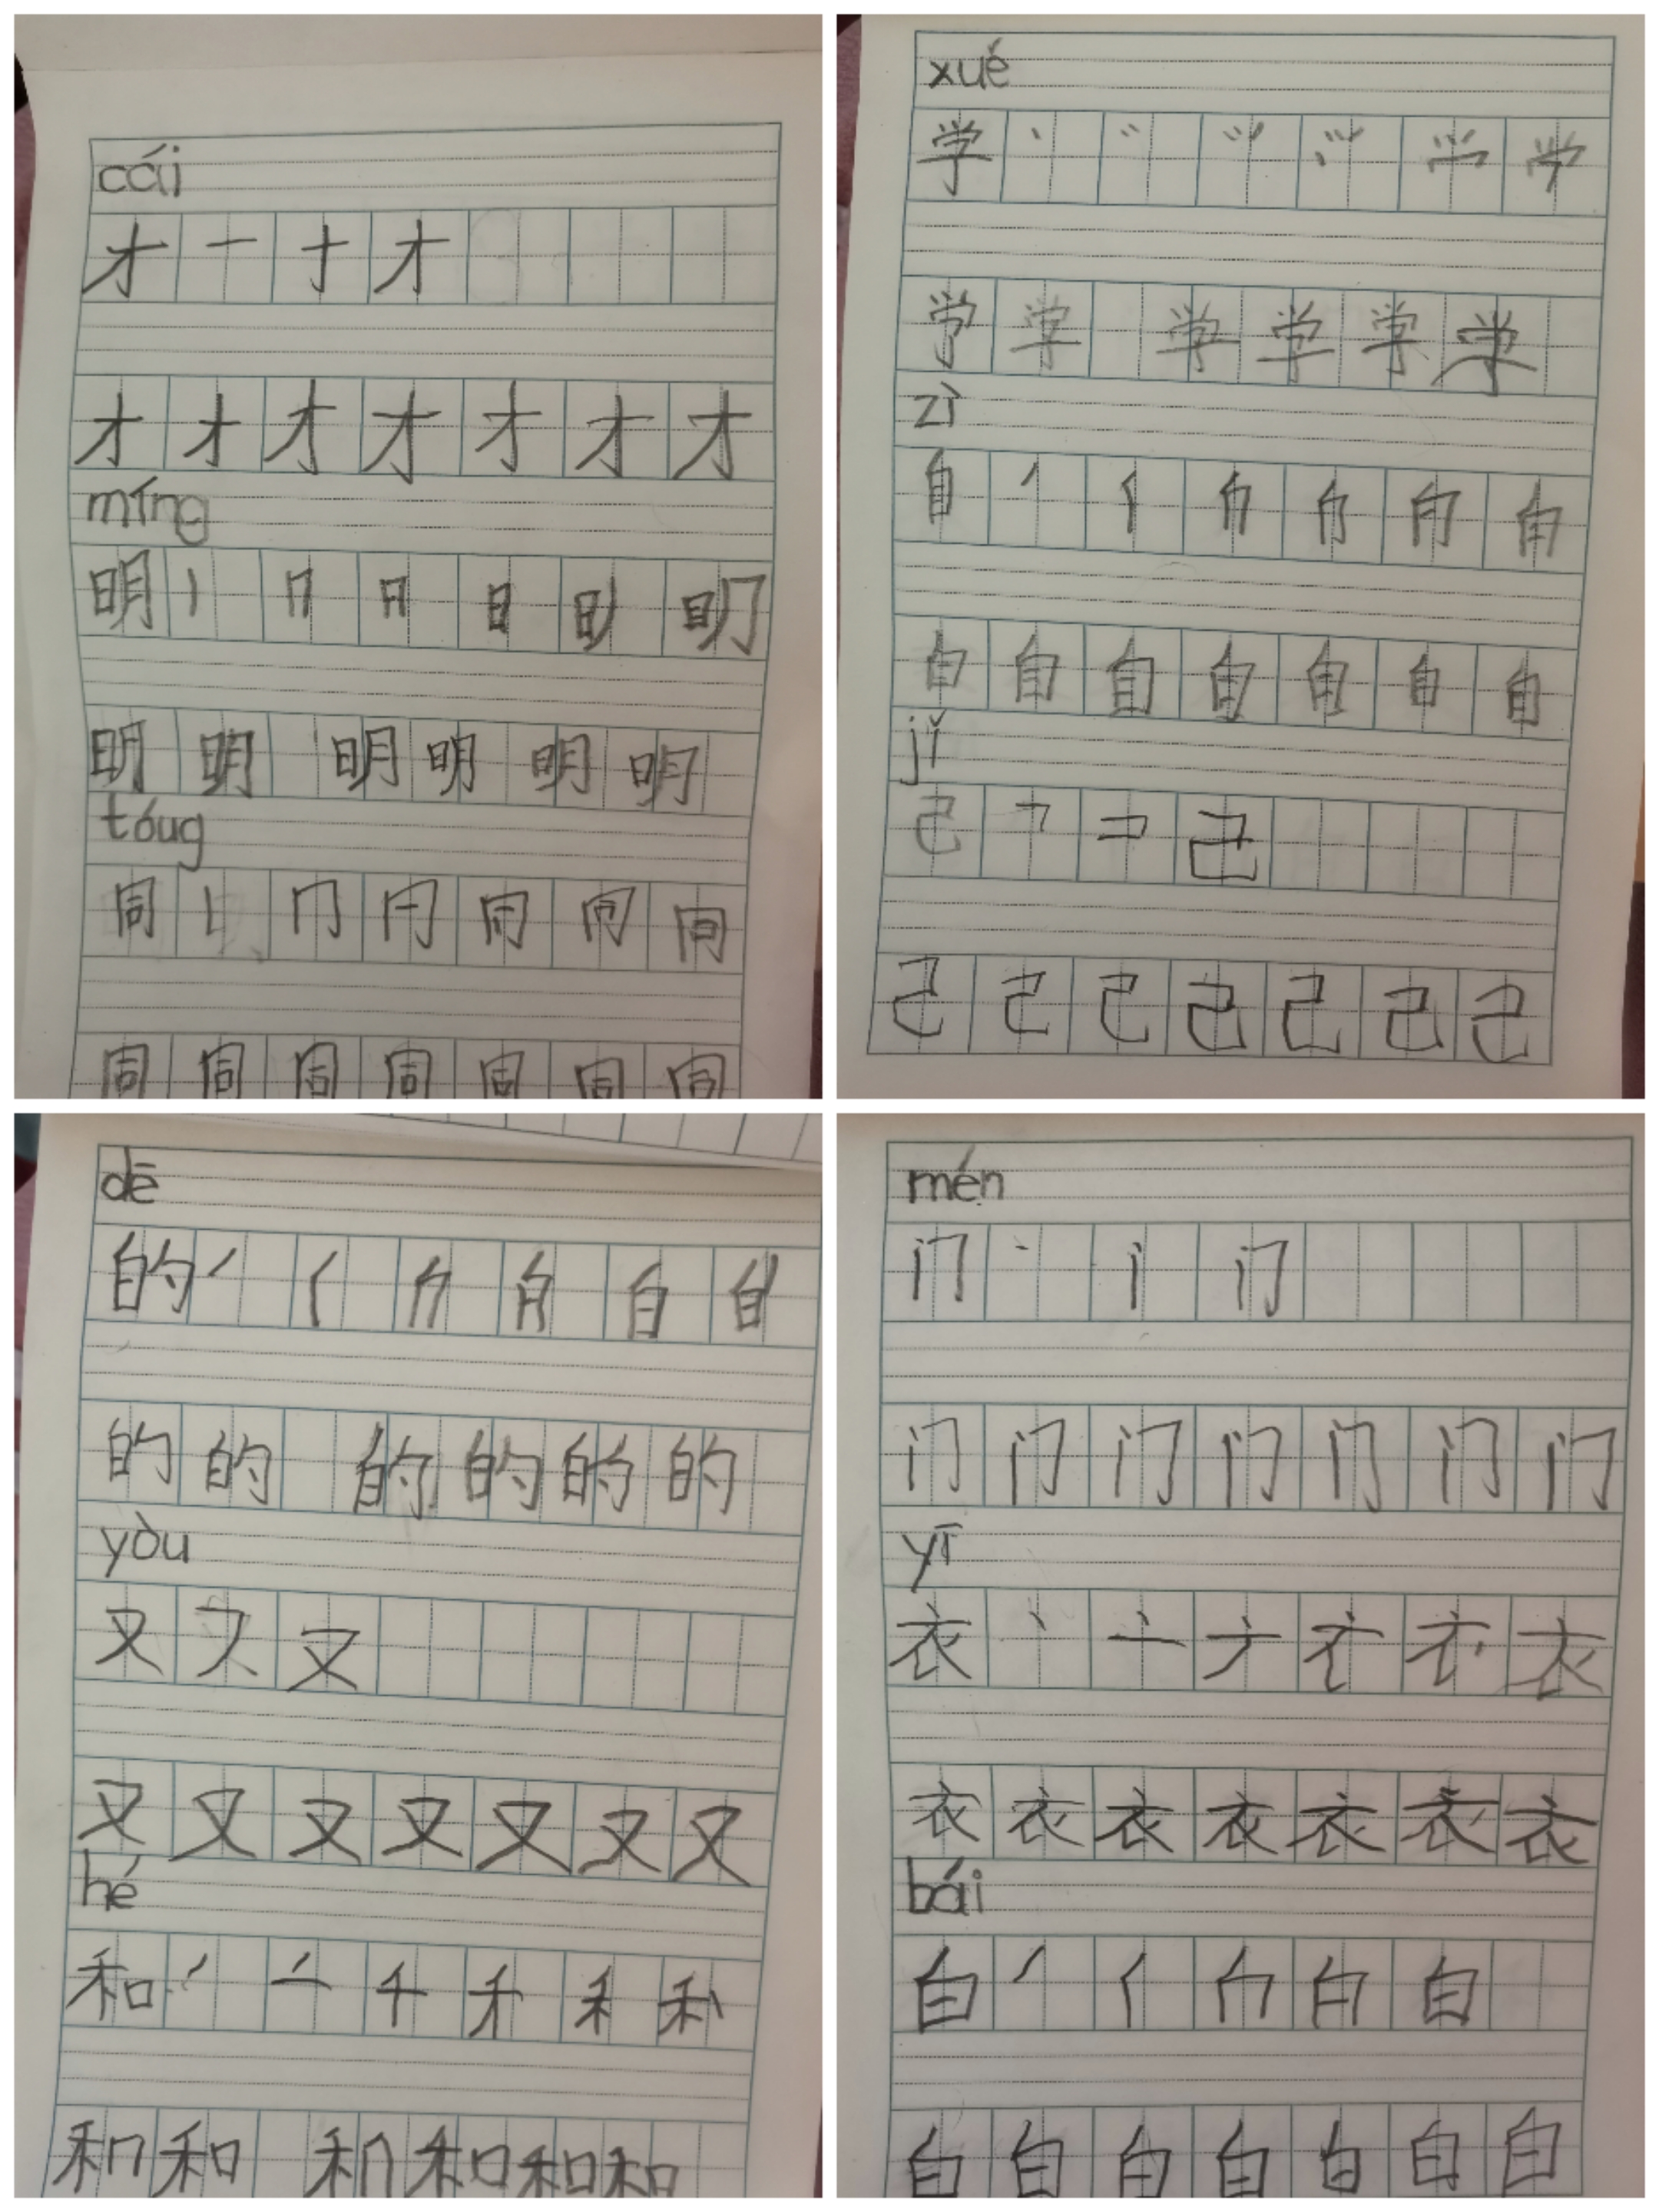 cái
才 一 十 才
才 才 才 才 才 才 才
míng
明 丨 冂 月 日 日丿 明
明 明 明 明 明 明
tóug
同 丨 冂 同 同
同 同 同 同 同 同 同
xué
学 丶
学 学 学 学 学 学
zì
自 丿 自
自 自 自 自 自 自 自
jǐ
己 𠃍 コ 己
己 己 己 己 己 己 己
dē
的 丿 亻 白
的 的 的 的 的 的
yòu
又 又 又
又 又 又 又 又 又 又
hé
和 丿 亠 千 禾 禾
和 和 和 和 和 和
mén
门 丶 门
门 门 门 门 门 门 门
yī
衣 丶 亠 衣
衣 衣 衣 衣 衣 衣 衣
bái
白 丿 亻 白
白 白 白 白 白 白 白